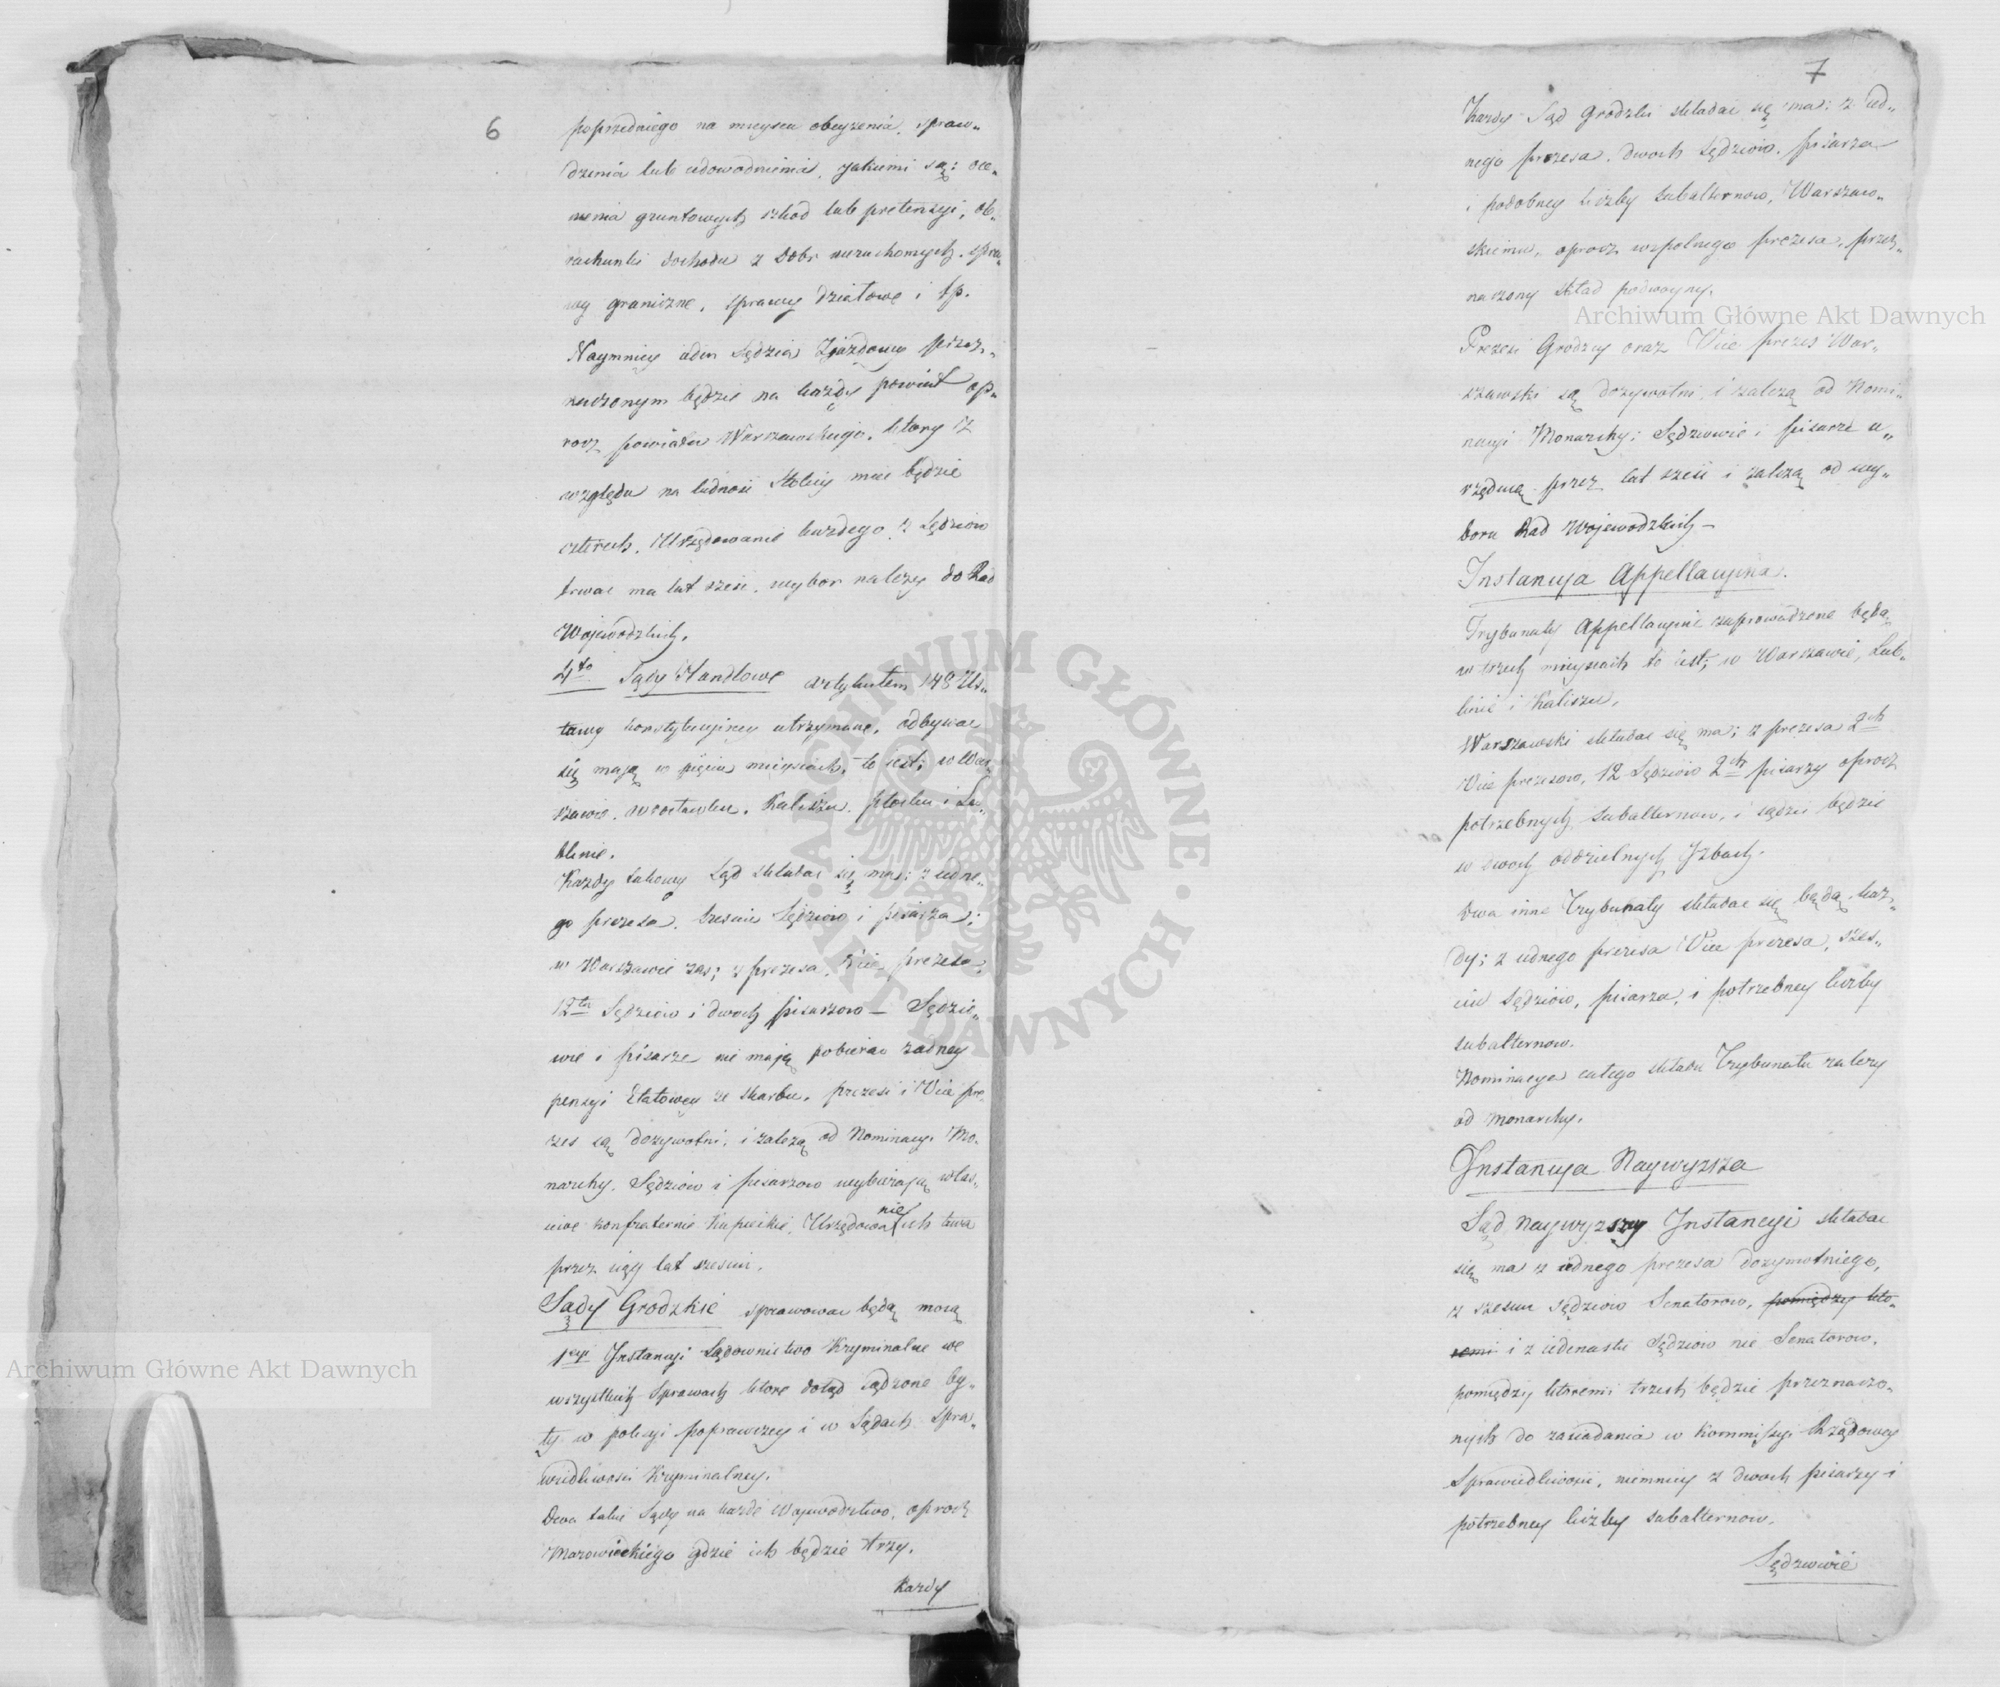 6
poprzedniego na mieyscu obeyrzenia, spraw„
dzenia lub udowodnienia, jakiemi są: oce„
nienia gruntowych szkod lub pretensyi, ob„
rachunki dochodu z Dobr nieruchomych, spra„
wy graniczne, sprawy działowe i tp.
Naymniey ieden Sędzia Zjazdowy przez„
naczonym będzie na każdy powiat op„
rocz powiatu Warszawskiego, ktory z
względu na ludność Stolicy miec będzie
czterech. Urzędowanie każdego z Sędziow
trwac ma lat sześc, wybor należy do Rad
Wojewodzkich.
4to Sądy Handlowe artykułem 148 Us„
tawy konstytucyiney utrzymane, odbywac
się mają w pięciu mieyscach, to iest; w War„
szawie, Wrocławku, Kaliszu, Płocku i Lu„
blinie.
Każdy takowy Sąd składac się ma: z iedne„
go prezesa, trzesciu Sędziow i pisarza;
w Warszawie zas; z prezesa, Vice prezesa,
12tu Sędziow i dwoch pisarzow — Sędzio„
wie i pisarze nie mają pobierac żadney
pensyi Etatowey ze skarbu, prezesi i Vice pre„
zes są dożywotni, i zależą od Nominacyi Mo„
narchy. Sędziow i pisarzow wybierają właś„
ciwe konfraternie Kupieckie, Urzędowanie ich trwa
przez ciąg lat szesciu.
Sądy Grodzkie sprawowac będą mocą
1szej Instancyi Sądownictwo Kryminalne we
wszystkich sprawach ktore dotąd sądzone by„
ły w policyi poprawczey i w Sądach Spra„
wiedliwosci Kryminalney.
Dwa takie Sądy na każde Wojewodztwo, oprocz
Mazowieckiego gdzie ich będzie trzy.
Każdy
7
Każdy Sąd Grodzki składac się ma: z ied„
nego prezesa, dwoch Sędziow, pisarza
i podobney liczby subalternow, Warszaw„
skiemu, oprocz wspolnego prezesa, przez„
naczony skład podwoyny.
Prezesi Grodzcy oraz Vice prezes War„
szawski są dożywotni, i zależą od Nomi„
nacyi Monarchy; Sędziowie i pisarze u„
rzędują przez lat sześć i zależą od wy„
boru Rad Wojewodzkich —
Instancya Appellacyina.
Trybunały Appellacyine zaprowadzone będą
w trzech mieyscach to iest; w Warszawie, Lub„
linie i Kaliszu.
Warszawski składac się ma; z prezesa 2ch
Vice prezesow, 12 Sędziow 2ch pisarzy oprocz
potrzebnych subalternow, i sądzic będzie
w dwoch oddzielnych Izbach.
Dwa inne Trybunały składac się będą każ„
dy; z iednego prezesa Vice prezesa, sześ„
ciu Sędziow, pisarza, i potrzebney liczby
subalternow.
Nominacya całego składu Trybunału zależy
od Monarchy.
Instancya Naywyzsza
Sąd Naywyzszy Instancyi składac
się ma z iednego prezesa dożywotniego,
z szesciu Sędziow Senatorow, pomiędzy kto„
remi i z iedenastu Sędziow nie Senatorow,
pomiędzy ktoremi trzech będzie przeznaczo„
nych do zasiadania w Kommissyi Rządowey
Sprawiedliwości, niemniey z dwoch pisarzy i
potrzebney liczby subalternow.
Sędziowie
Archiwum Główne Akt Dawnych
Archiwum Główne Akt Dawnych
ARCHIWUM GŁÓWNE · AKT DAWNYCH ·